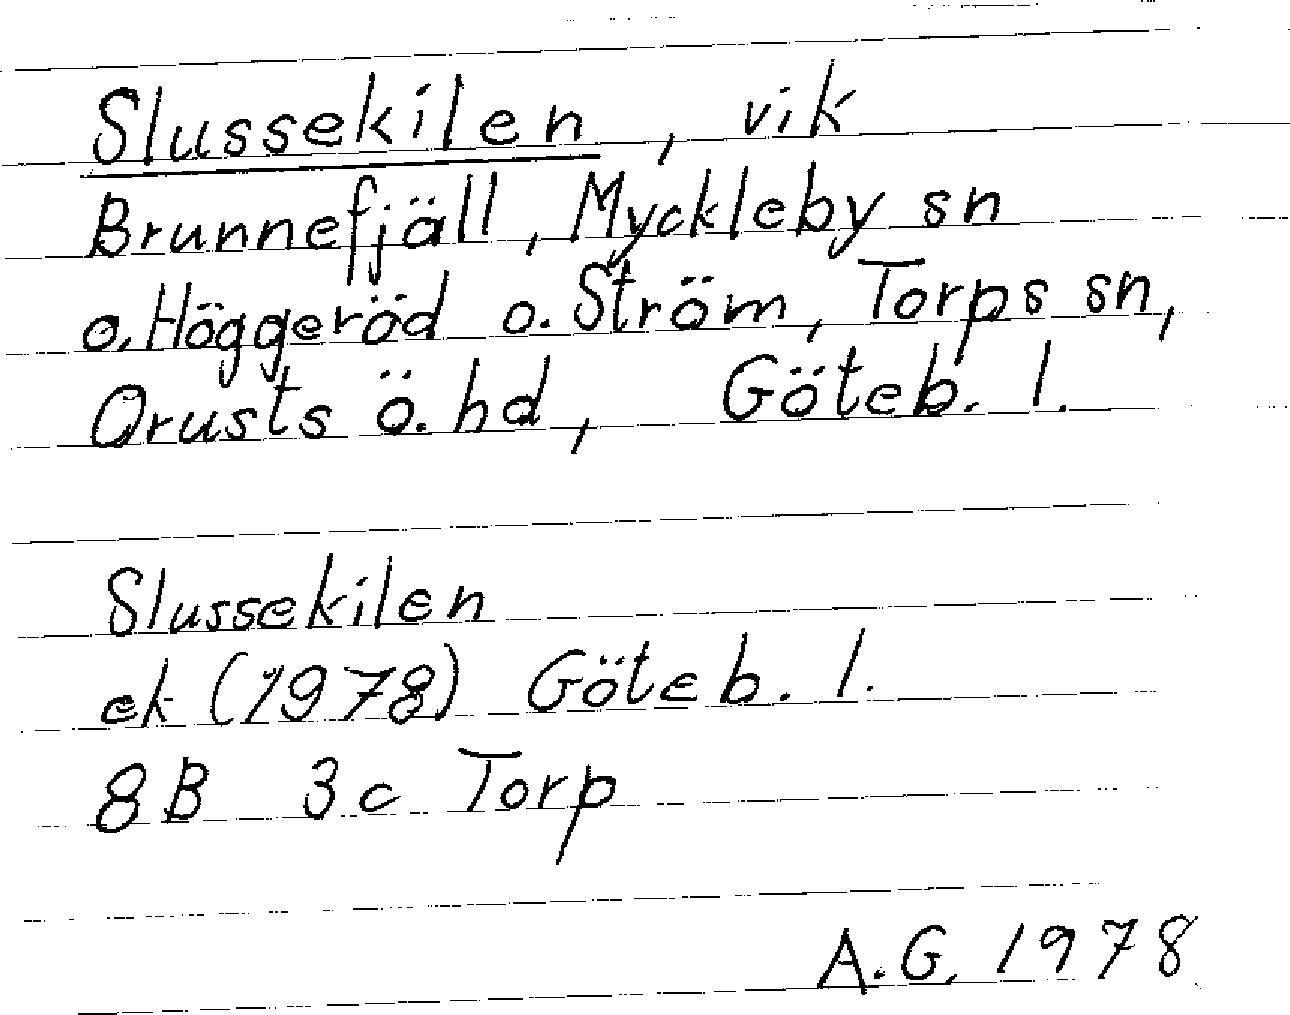 Slussekilen, vik
Brunnefjäll, Myckleby sn
o. Höggeröd o. Ström, Torps sn,
Orusts ö. hd, Göteb. l.
Slussekilen
ek (1978) Göteb. l.
8B 3c Torp
A.G. 1978